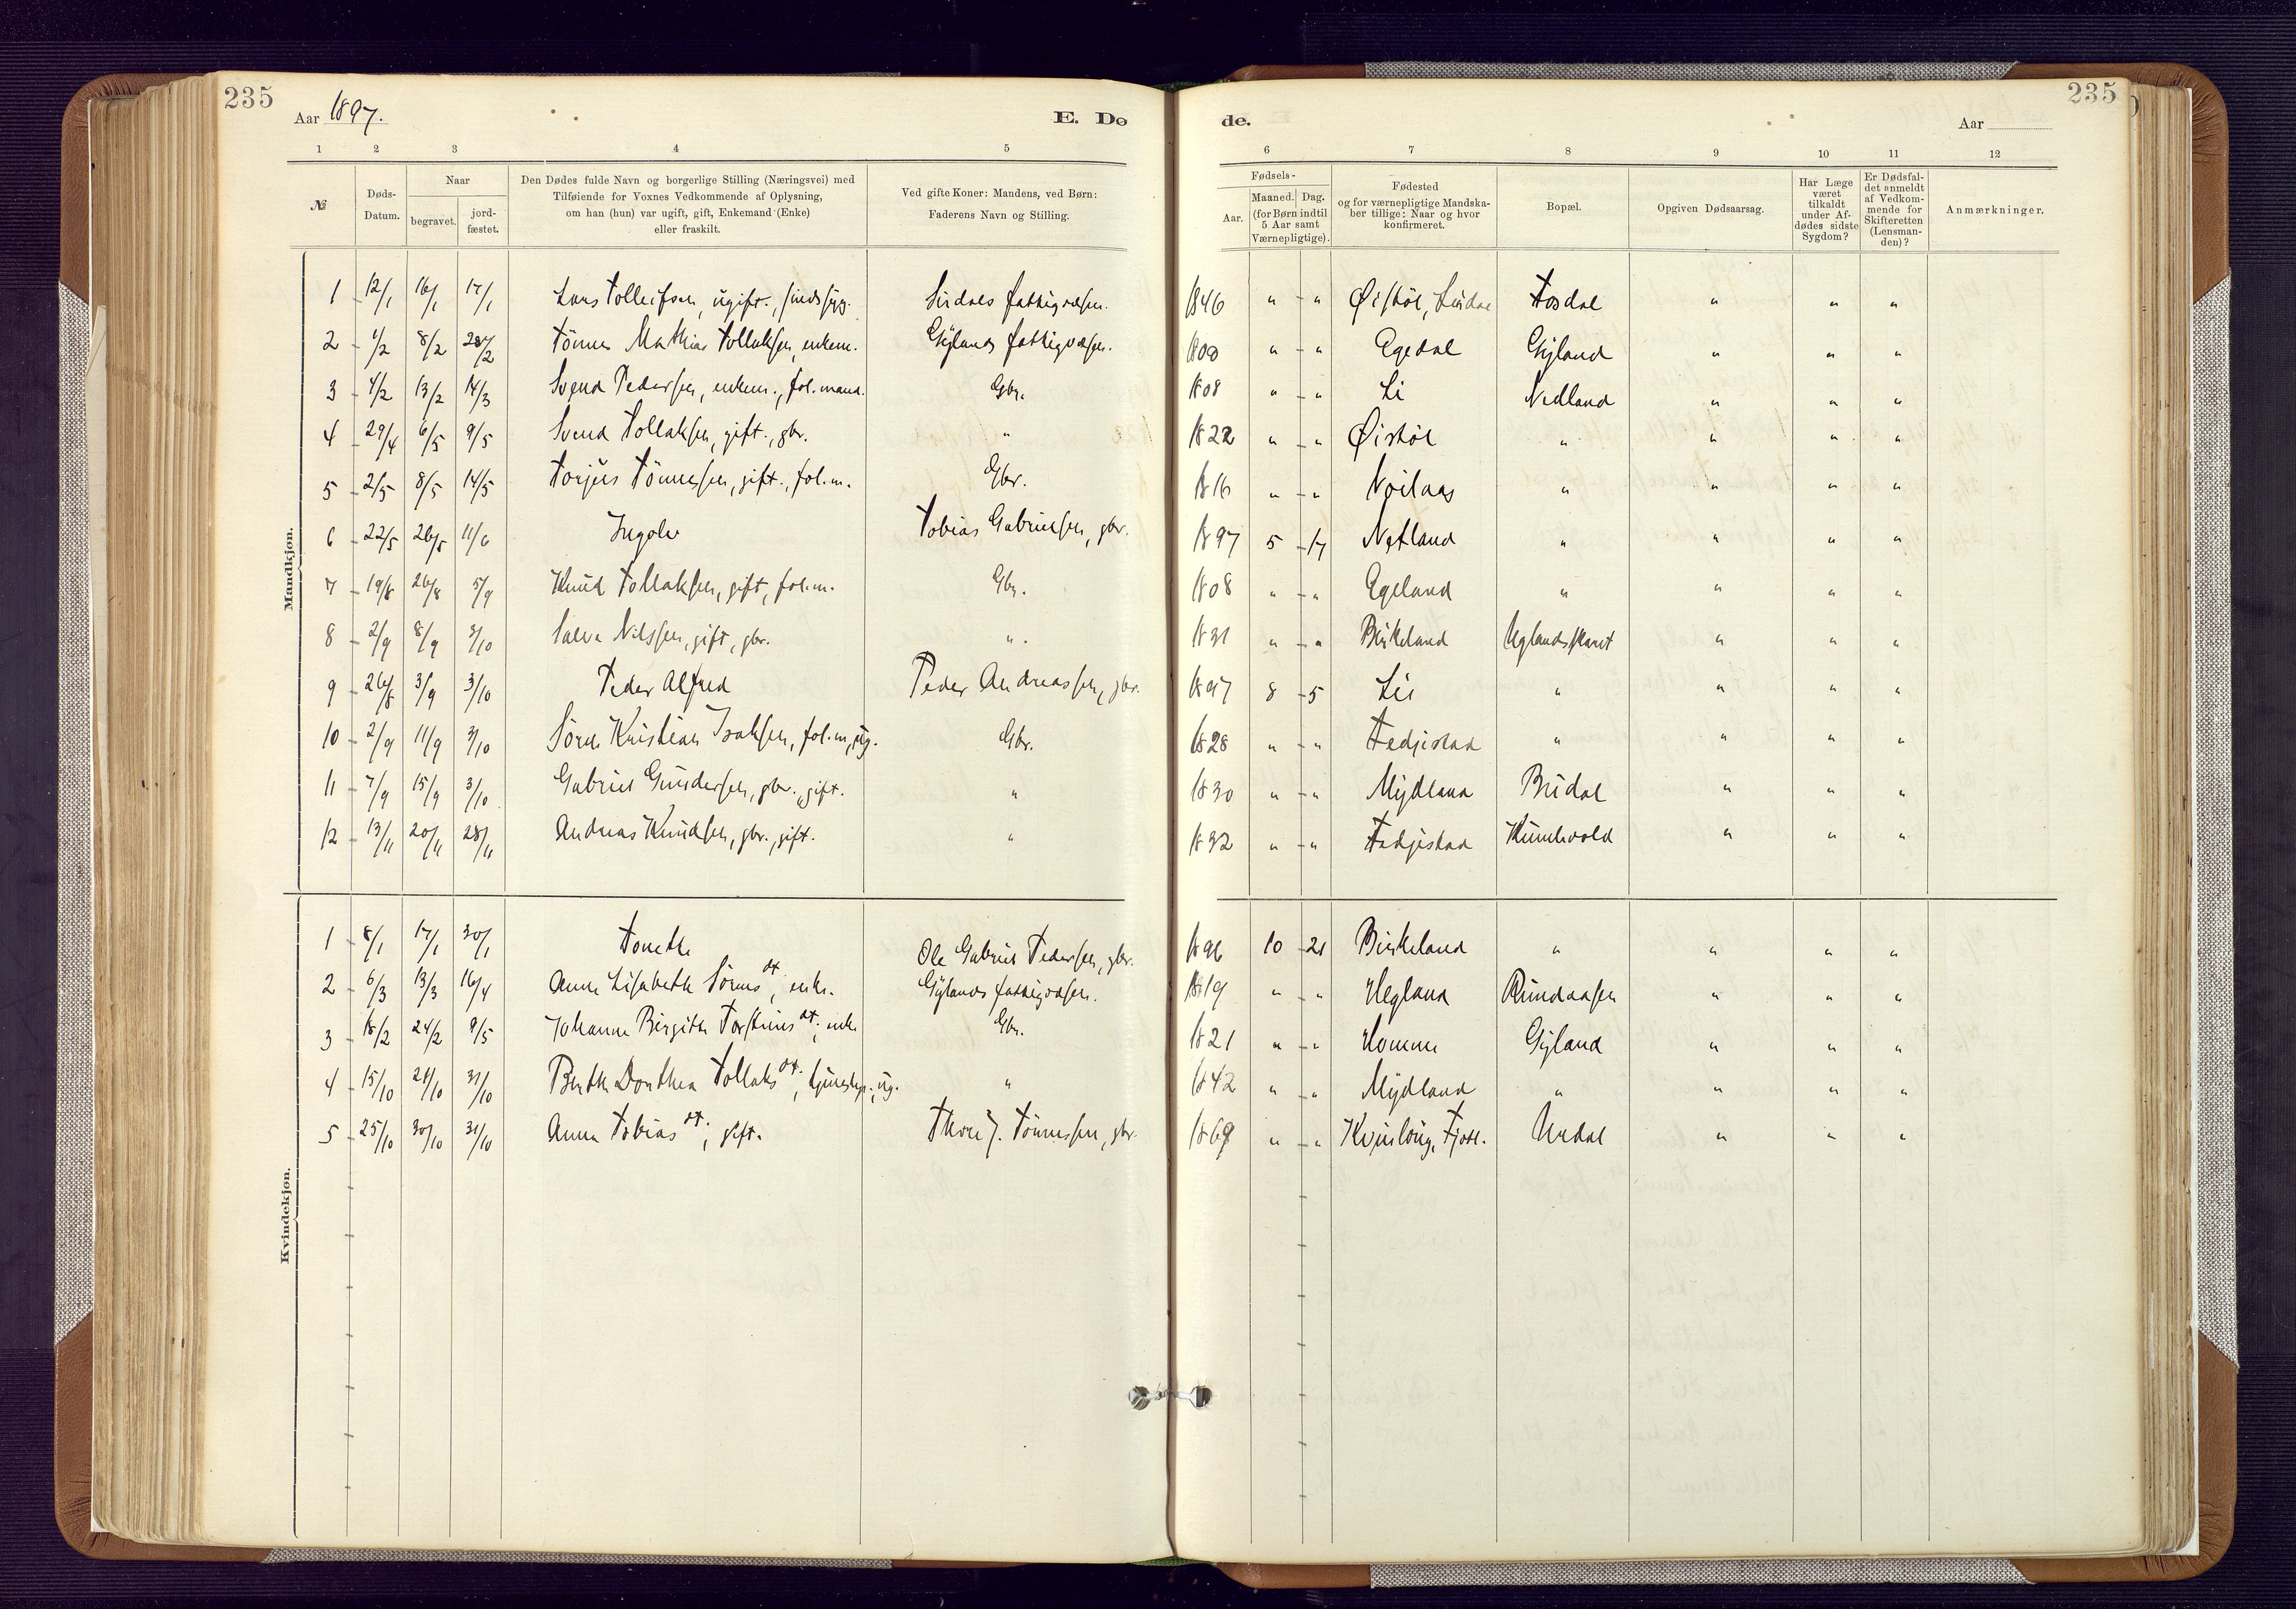 235
Aar 1897.
E. Dø
de.
Aar
235
1 2 3 4 5 6 7 8 9 10 11 12
№
Døds-Datum.
Naar
begravet.
jord-fæstet.
Den Dødes fulde Navn og borgerlige Stilling (Næringsvei) med
Tilføiende for Voxnes Vedkommende af Oplysning,
om han (hun) var ugift, gift, Enkemand (Enke)
eller fraskilt.
Ved gifte Koner: Mandens, ved Børn:
Faderens Navn og Stilling.
Fødsels-
Aar.
Maaned. Dag.
(for Børn indtil
5 Aar samt
Værnepligtige).
Fødested
og for værnepligtige Mandska-
ber tillige: Naar og hvor
konfirmeret.
Bopæl.
Opgiven Dødsaarsag.
Har Læge
været
tilkaldt
under Af-
dødes sidste
Sygdom?
Er Dødsfal-
det anmeldt
af Vedkom-
mende for
Skifteretten
(Lensman-
den)?
Anmærkninger.
Mandkjøn.
1 12/1 16/1 17/1 Lars Tolleifsen, ugift., sindssyg. Sirdals fattigvæsen. 1846 " " Øistøl, Tosdal " " "
2 1/2 8/2 28/2 Tønnes Mathias Tollaksen, enkem. Gylands fattigvæsen. 1800 " " Egedal Gyland " " "
3 4/2 13/2 14/3 Svend Pedersen, enkem., fol.mand. Gbr. 1808 " " Li Nedland " " "
4 29/4 6/5 9/5 Svend Tollaksen, gift., gbr. " 1822 " " Øistøl " " " "
5 2/5 8/5 14/5 Torjus Tønnesen, gift., fol.m. Gbr. 1816 " " Noilaas " " " "
6 22/5 26/5 11/6 Ingolv Tobias Gabrielsen, gbr. 1897 5 17 Netland " " " "
7 19/8 26/8 5/9 Knud Tollaksen, gift, fol.m. Gbr. 1808 " " Egeland " " " "
8 2/9 8/9 3/10 Salve Nilssen, gift, gbr. " 1831 " " Birkeland Uglandsskaret " " "
9 26/8 3/9 3/10 Peder Alfred Peder Andreassen, gbr. 1897 8 5 Lii " " " "
10 2/9 11/9 3/10 Sören Kristian Isaksen, fol.m, ug. Gbr. 1828 " " Fedjestad " " " "
11 7/9 15/9 3/10 Gabriel Gundersen, gbr., gift. " 1830 " " Mydland Budal " " "
12 13/11 20/11 28/11 Andreas Knudsen, gbr., gift. " 1832 " " Fedjestad Kumlevold " " "
Kvindekjøn.
1 8/1 17/1 30/1 Tonette Ole Gabriel Pedersen, gbr. 1896 10 21 Birkeland " " " "
2 6/3 13/3 16/4 Anne Lisabeth Sörens dt., enke. Gylands fattigvæsen. 1819 " " Hegland Rundaasen " " "
3 18/2 24/2 9/5 Johanne Birgitte Torstens dt., enke Gbr. 1821 " " Homme Gyland " " "
4 15/10 21/10 31/10 Berthe Dorthea Tollaks dt., tjenestep., ug. " 1842 " " Mydland " " " "
5 25/10 30/10 31/10 Anna Tobias dt., gift. Thore J. Tönnessen, gbr. 1869 " " Kvinlaug, Fjotl. Urdal " " "